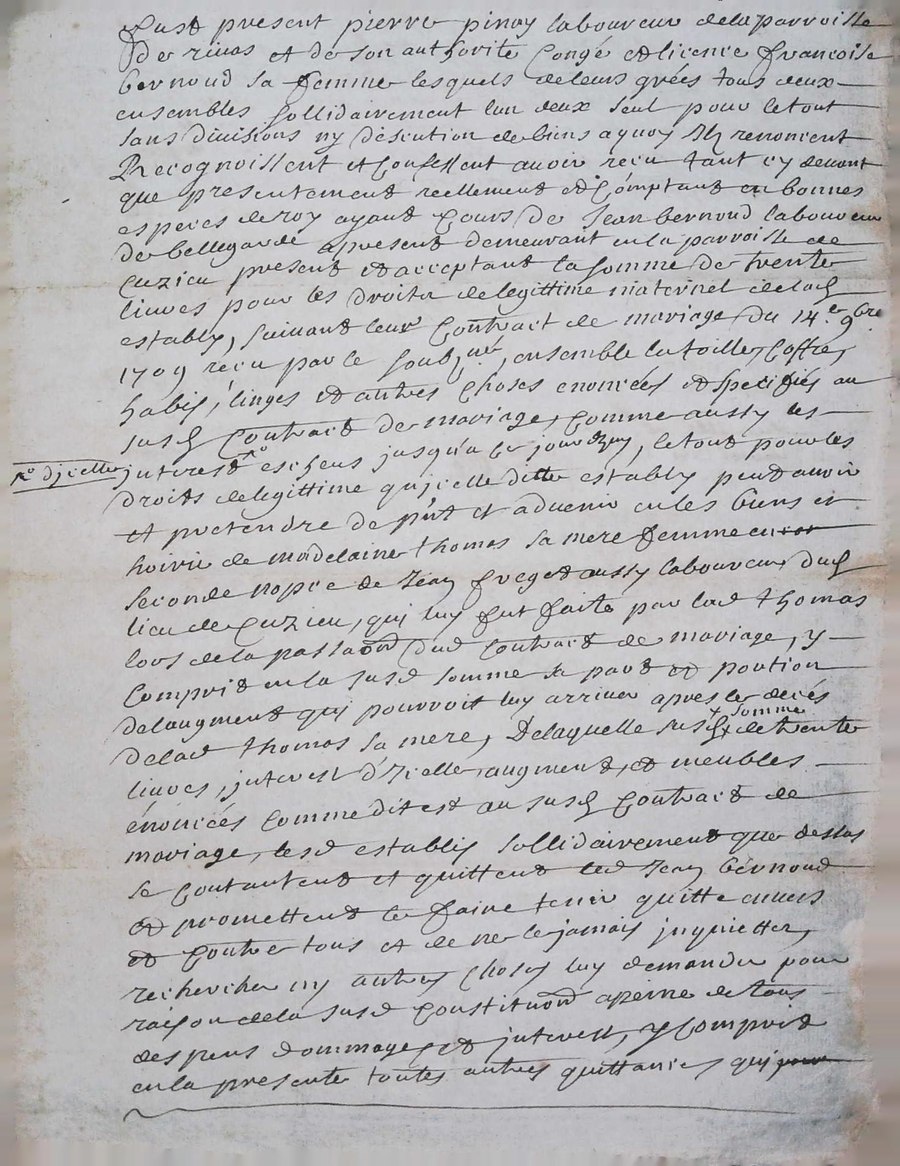 fust present pierre pinay laboureur de la parroisse
de rivas et de son authorité Congé et licence francoise
bernoud sa femme lesquels de leurs grées tous deux
ensembles sollidairement lun deux seul pour le tout
sans divisions ny discution de biens a quoy Ils renoncent
Recognoissent et Confessent avoir recu tant cy devant
que presentement reellement et Comptant en bonnes
especes de roy ayant Cours de Jean bernoud laboureur
de bellegarde apresent demeurant en la parroisse de
Cuzieu present et acceptant la somme de trente
livres pour les droits de legittime maternel de lad
establye, suivant leur Contract de mariage du 14e 9bre
1709 recu par le soubzné, ensemble la toille, Coffre,
habis, linges et autres choses enoncées et speciffiés au
susd Contract de mariage, Comme aussy les
re d'icelle
interest escheus jusqu'a ce jourdhuy, le tout pour les
droits de legittime qu'icelle ditte establye peut avoir
et pretendre de pnt et advenir en les biens et
hoirie de madelaine thomas sa mere femme en
seconde nopce de Jean freget aussy laboureur dud
lieu de Cuzieu, qui luy fut faite par lad thomas
lors de la passaon dud Contract de mariage, y
Compris en la susd somme sa part et portion
de laugment qui pourroit luy arriver apres le decés
de lad thomas sa mere, De laquelle susd somme de trente
livres, interest d'Icelle, augment, et meubles
énoncées comme dit est au susd Contract de
mariage, lesd establis sollidairement que dessus
se Contantent et quittent led Jean bernoud
et promettent le faire tenir quitte envers
et Contre tous et de ne le jamais inquietter,
rechercher ny autres choses luy demander pour
raison de la susd Constituon apeine de tous
despens dommages et interest, y Compris
en la presente toutes autres quittances qui